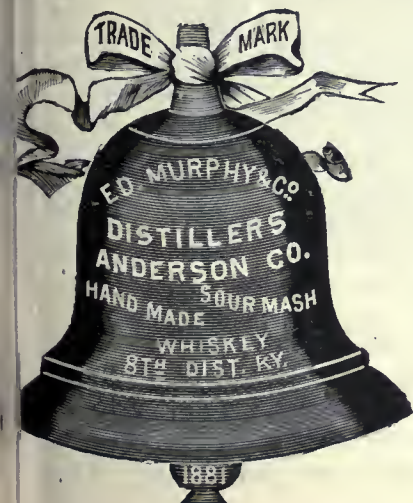 TRADE MARK
ED. MURPHY & Co.
DISTILLERS
ANDERSON CO.
HAND MADE SOUR MASH
WHISKEY
8TH DIST. KY.
1881